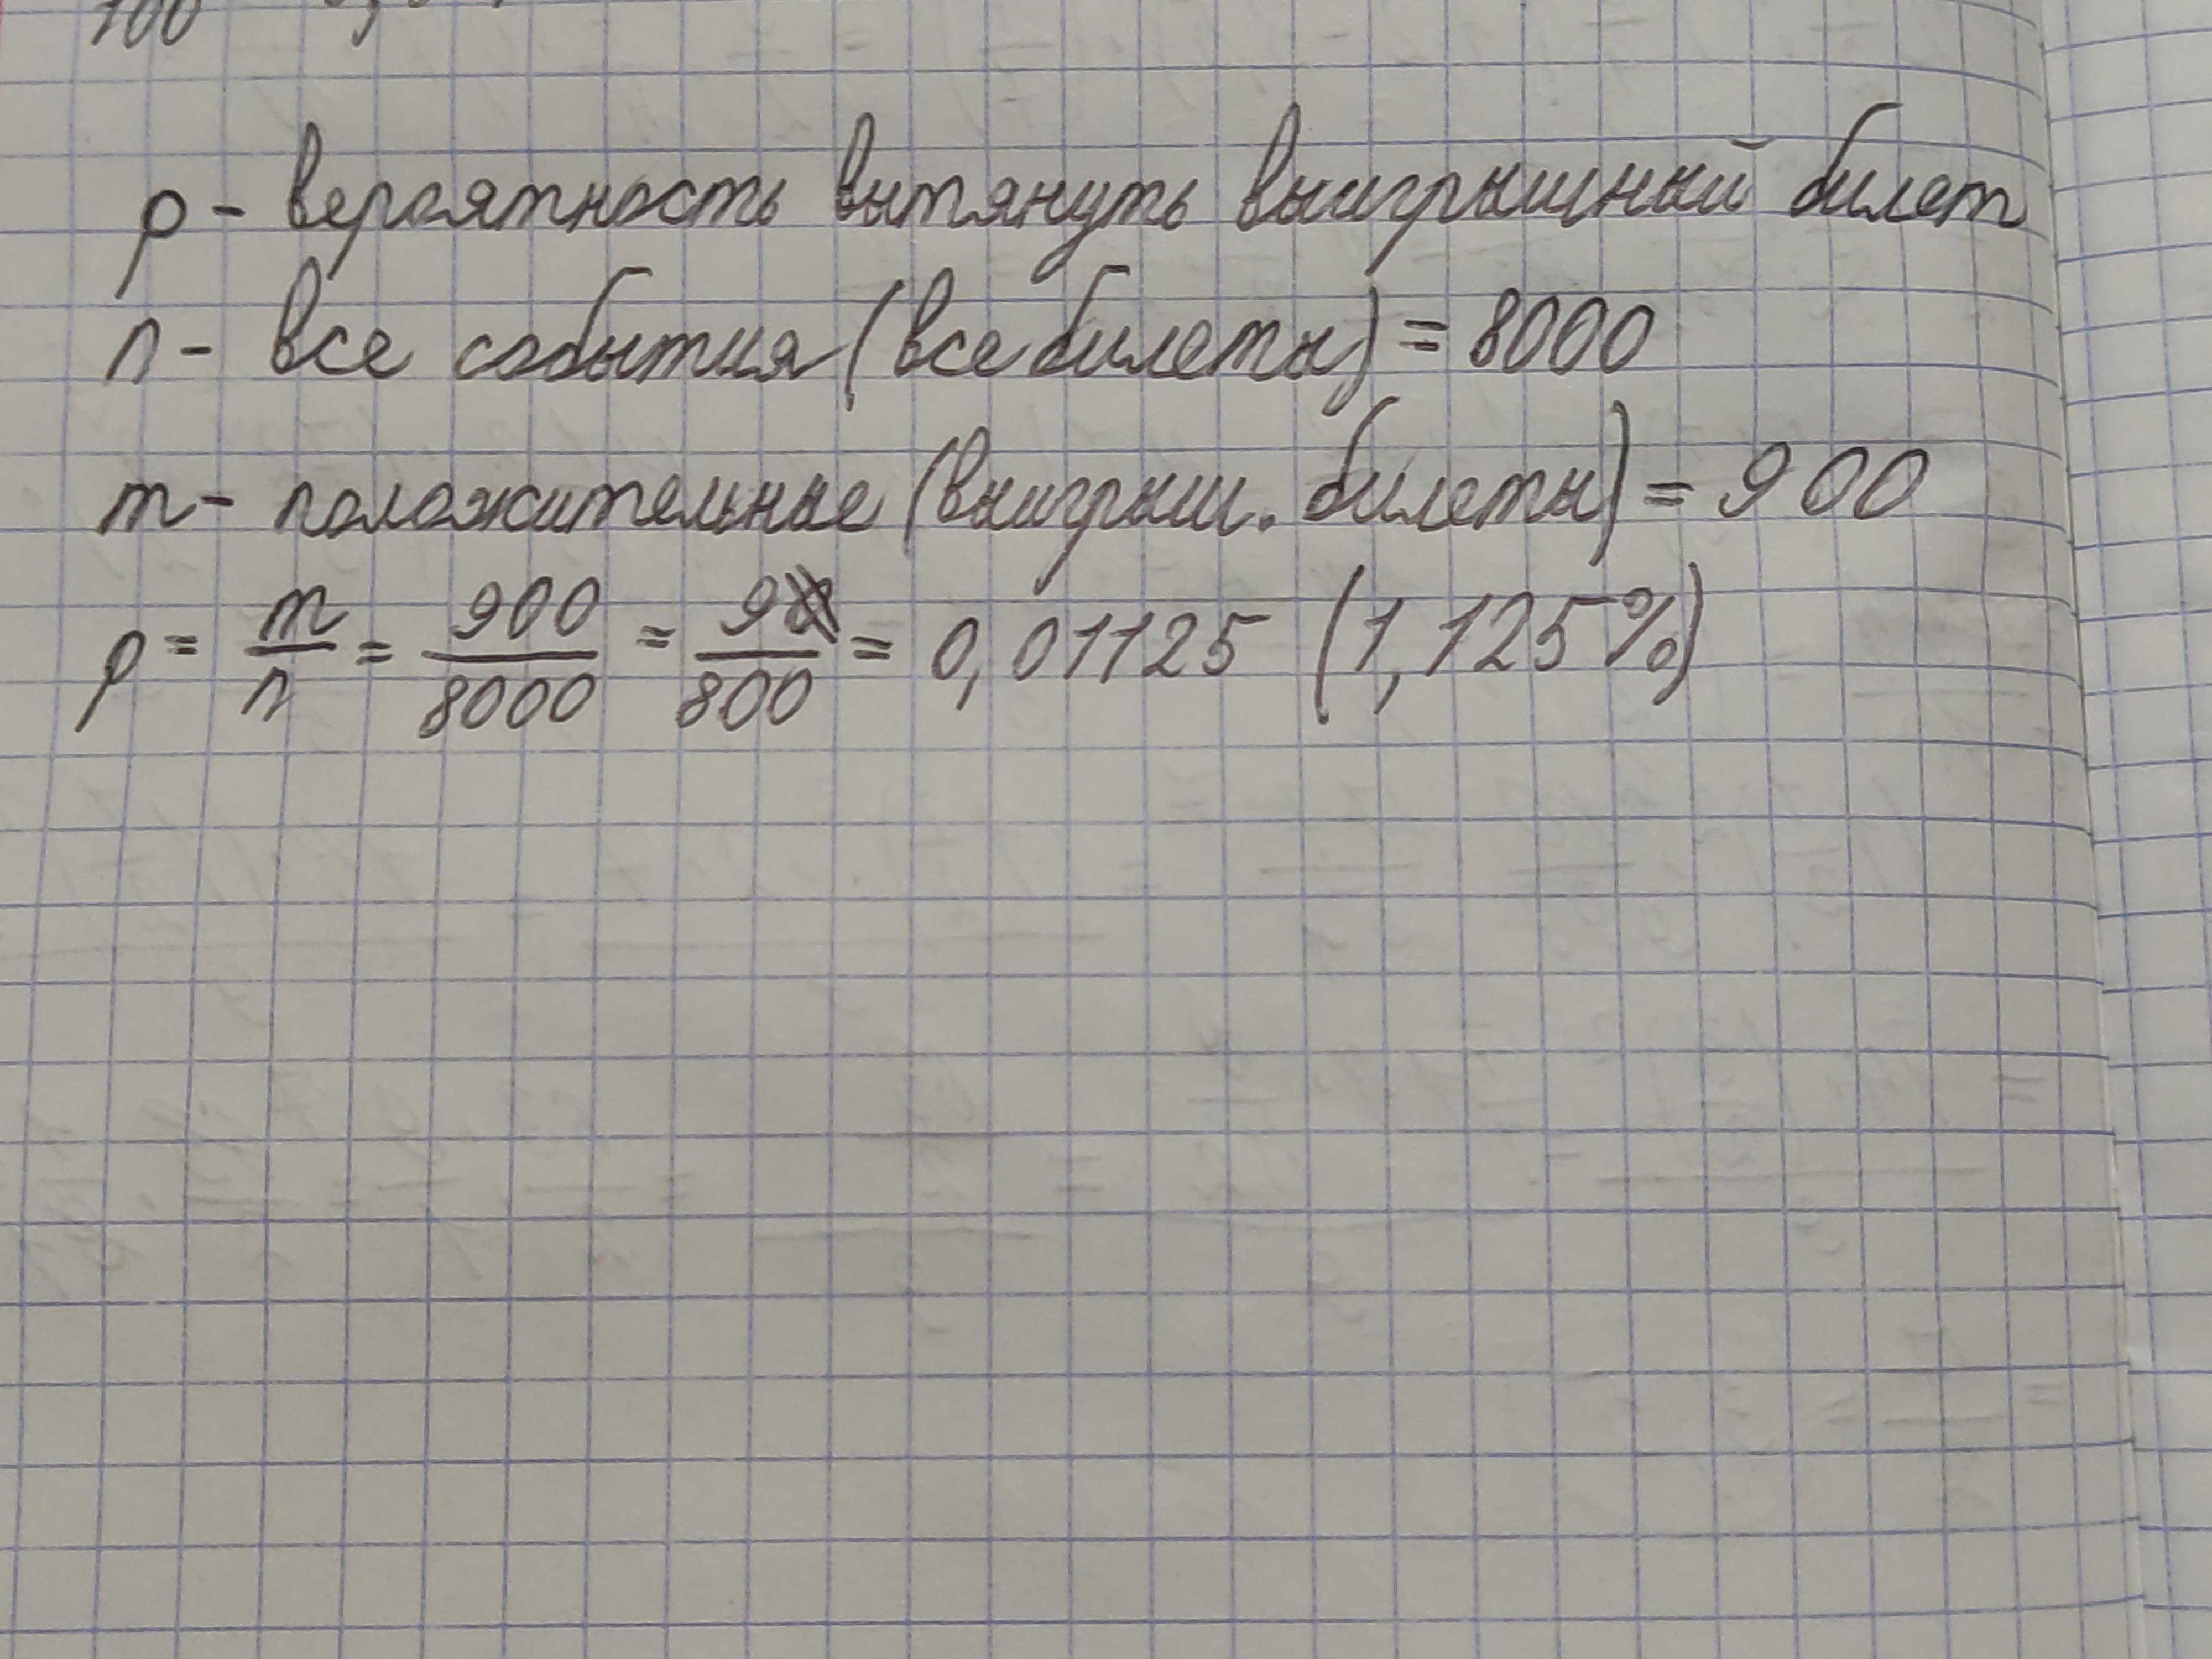 100
p - вероятность вытянуть выигрышный билет
n - все события (все билеты) = 8000
m - положительные (выигрыш. билеты) = 900
p = m/n = 900/8000 = 9/800 = 0,01125 (1,125%)